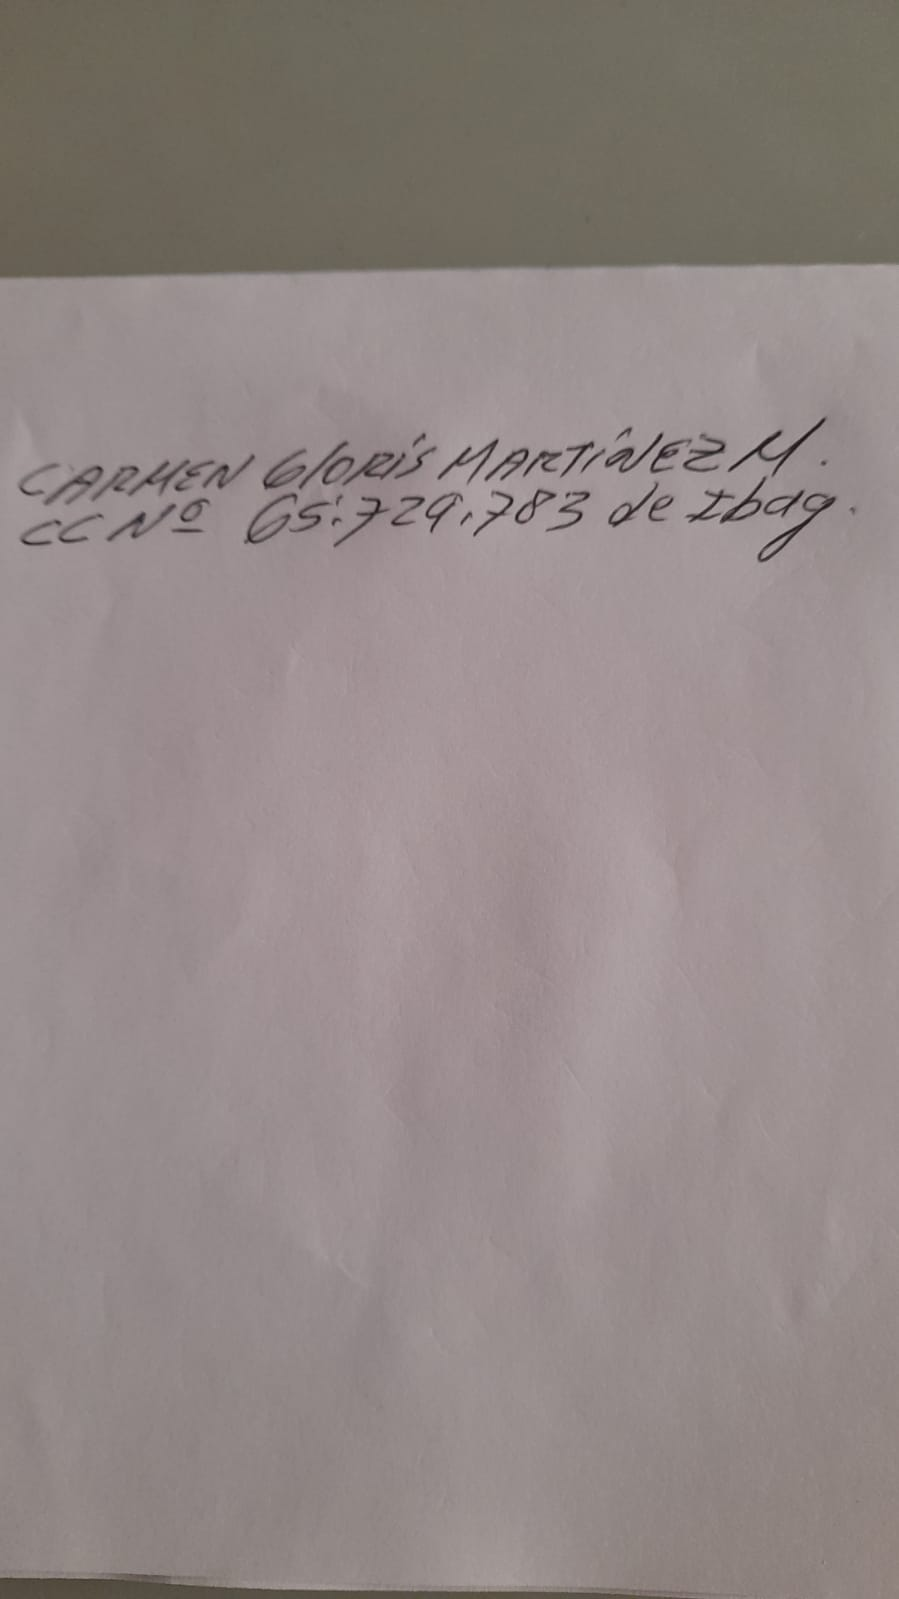 CARMEN GlORíS MARTíNEZ M.
CC Nº 65.729.783 de Ibag.